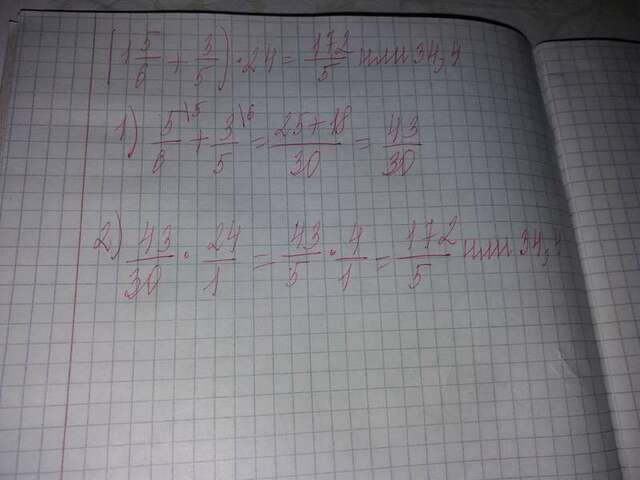 (1 5/6 + 3/5) · 24 = 172/5 или 34,4
1) 5/6 \5 + 3/5 \6 = 25+18/30 = 43/30
2) 43/30 · 24/1 = 43/5 · 4/1 = 172/5 или 34,4